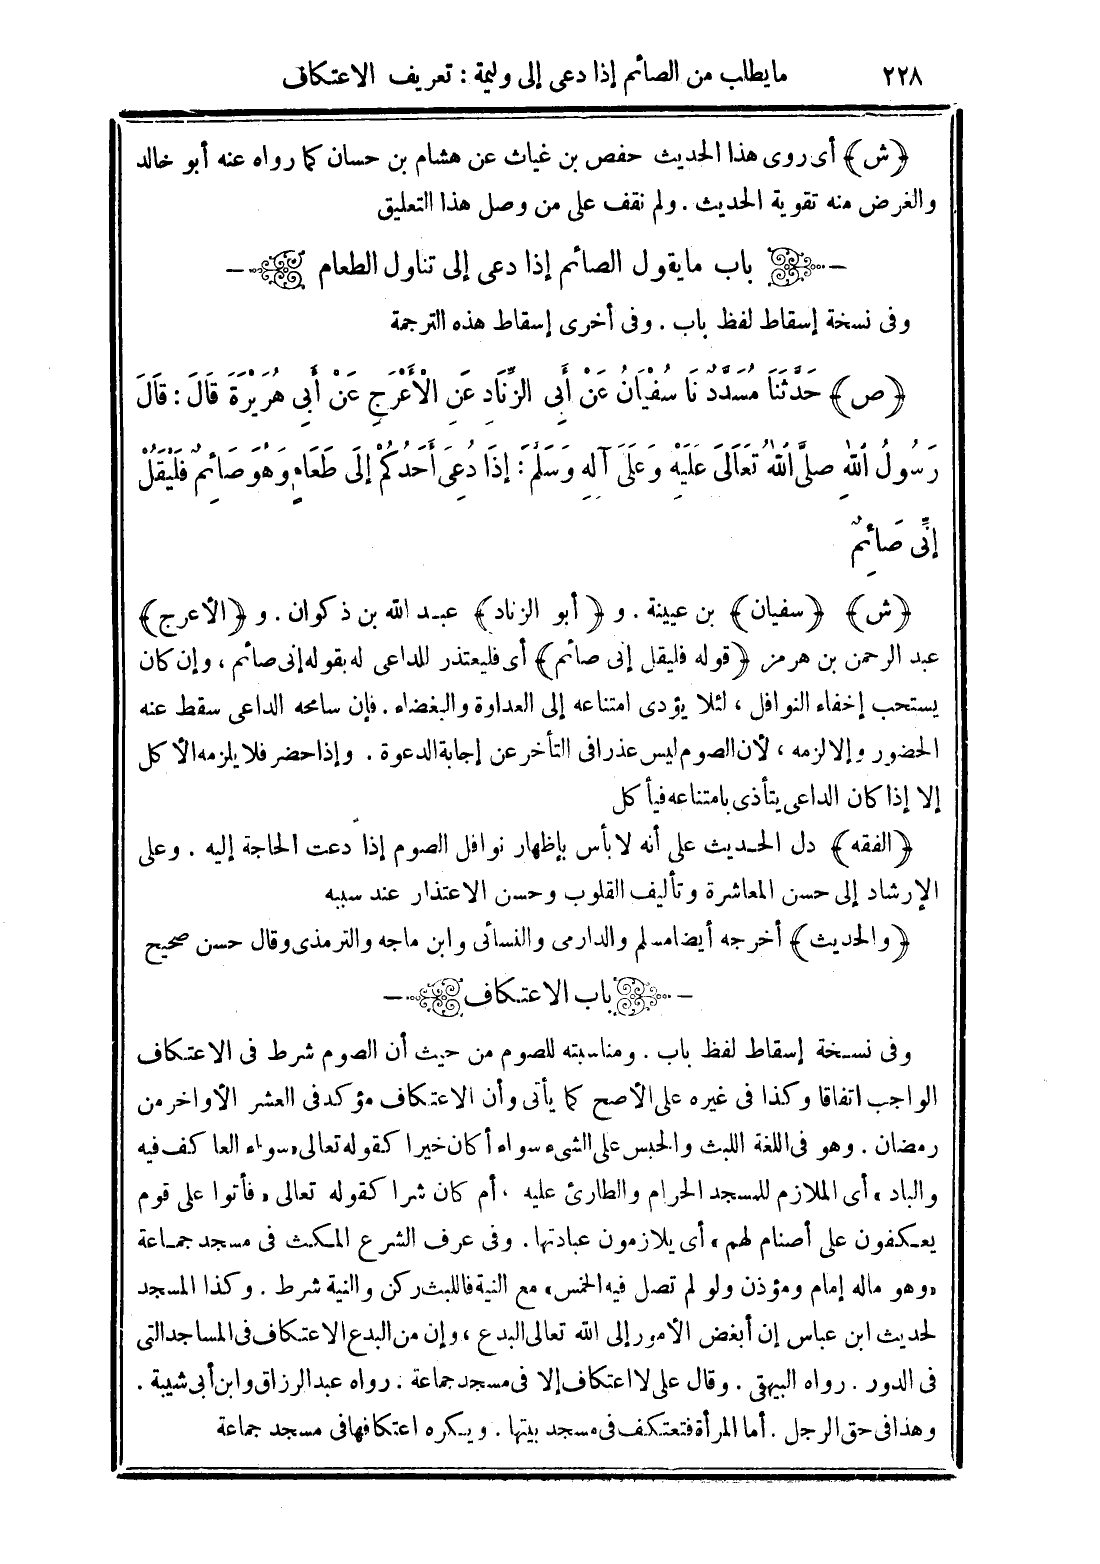 ٢٢٨ ما يطلب من الصائم إذا دعى إلى وليمة : تعريف الاعتكاف
﴿ش﴾ أى روى هذا الحديث حفص بن غياث عن هشام بن حسان كما رواه عنه أبو خالد
والغرض منه تقوية الحديث . ولم نقف على من وصل هذا التعليق
باب ما يقول الصائم إذا دعى إلى تناول الطعام
وفى نسخة إسقاط لفظ باب . وفى أخرى إسقاط هذه الترجمة
﴿ص﴾ حَدَّثَنَا مُسَدَّدٌ نَا سُفْيَانُ عَنْ أَبِى الزِّنَادِ عَنِ الْأَعْرَجِ عَنْ أَبِى هُرَيْرَةَ قَالَ : قَالَ
رَسُولُ اللهِ صلَّى اللهُ تَعَالَى عَلَيْهِ وَعَلَى آلِهِ وَسَلَّمَ : إِذَا دُعِىَ أَحَدُكُمْ إِلَى طَعَامٍ وَهُوَ صَائِمٌ فَلْيَقُلْ
إِنِّى صَائِمٌ
﴿ش﴾ ﴿سفيان﴾ بن عيينة . و ﴿أبو الزناد﴾ عبد الله بن ذكوان . و ﴿الأعرج﴾
عبد الرحمن بن هرمز ﴿قوله فليقل إنى صائم﴾ أى فليعتذر للداعى له بقوله إنى صائم ، وإن كان
يستحب إخفاء النوافل ، لئلا يؤدى امتناعه إلى العداوة والبغضاء . فإن سامحه الداعى سقط عنه
الحضور وإلا لزمه ، لأن الصوم ليس عذرا فى التأخر عن إجابة الدعوة . وإذا حضر فلا يلزمه الأكل
إلا إذا كان الداعى يتأذى بامتناعه فيأكل
﴿الفقه﴾ دل الحديث على أنه لا بأس بإظهار نوافل الصوم إذا دعت الحاجة إليه . وعلى
الإرشاد إلى حسن المعاشرة وتأليف القلوب وحسن الاعتذار عند سببه
﴿والحديث﴾ أخرجه أيضا مسلم والدارمى والنسائى وابن ماجه والترمذى وقال حسن صحيح
باب الاعتكاف
وفى نسخة إسقاط لفظ باب . ومناسبته للصوم من حيث أن الصوم شرط فى الاعتكاف
الواجب اتفاقا وكذا فى غيره على الأصح كما يأتى وأن الاعتكاف مؤكد فى العشر الأواخر من
رمضان . وهو فى اللغة اللبث والحبس على الشىء سواء أكان خيرا كقوله تعالى «سواء العاكف فيه
والباد» أى الملازم للمسجد الحرام والطارئ عليه ، أم كان شرا كقوله تعالى «فأتوا على قوم
يعكفون على أصنام لهم» أى يلازمون عبادتها . وفى عرف الشرع المكث فى مسجد جماعة
«وهو ماله إمام ومؤذن ولو لم تصل فيه الخمس» مع النية فاللبث ركن والنية شرط . وكذا المسجد
لحديث ابن عباس إن أبغض الأمور إلى الله تعالى البدع ، وإن من البدع الاعتكاف فى المساجد التى
فى الدور . رواه البيهقى . وقال على لا اعتكاف إلا فى مسجد جماعة . رواه عبد الرزاق وابن أبى شيبة .
وهذا فى حق الرجل . أما المرأة فتعتكف فى مسجد بيتها . ويكره اعتكافها فى مسجد جماعة